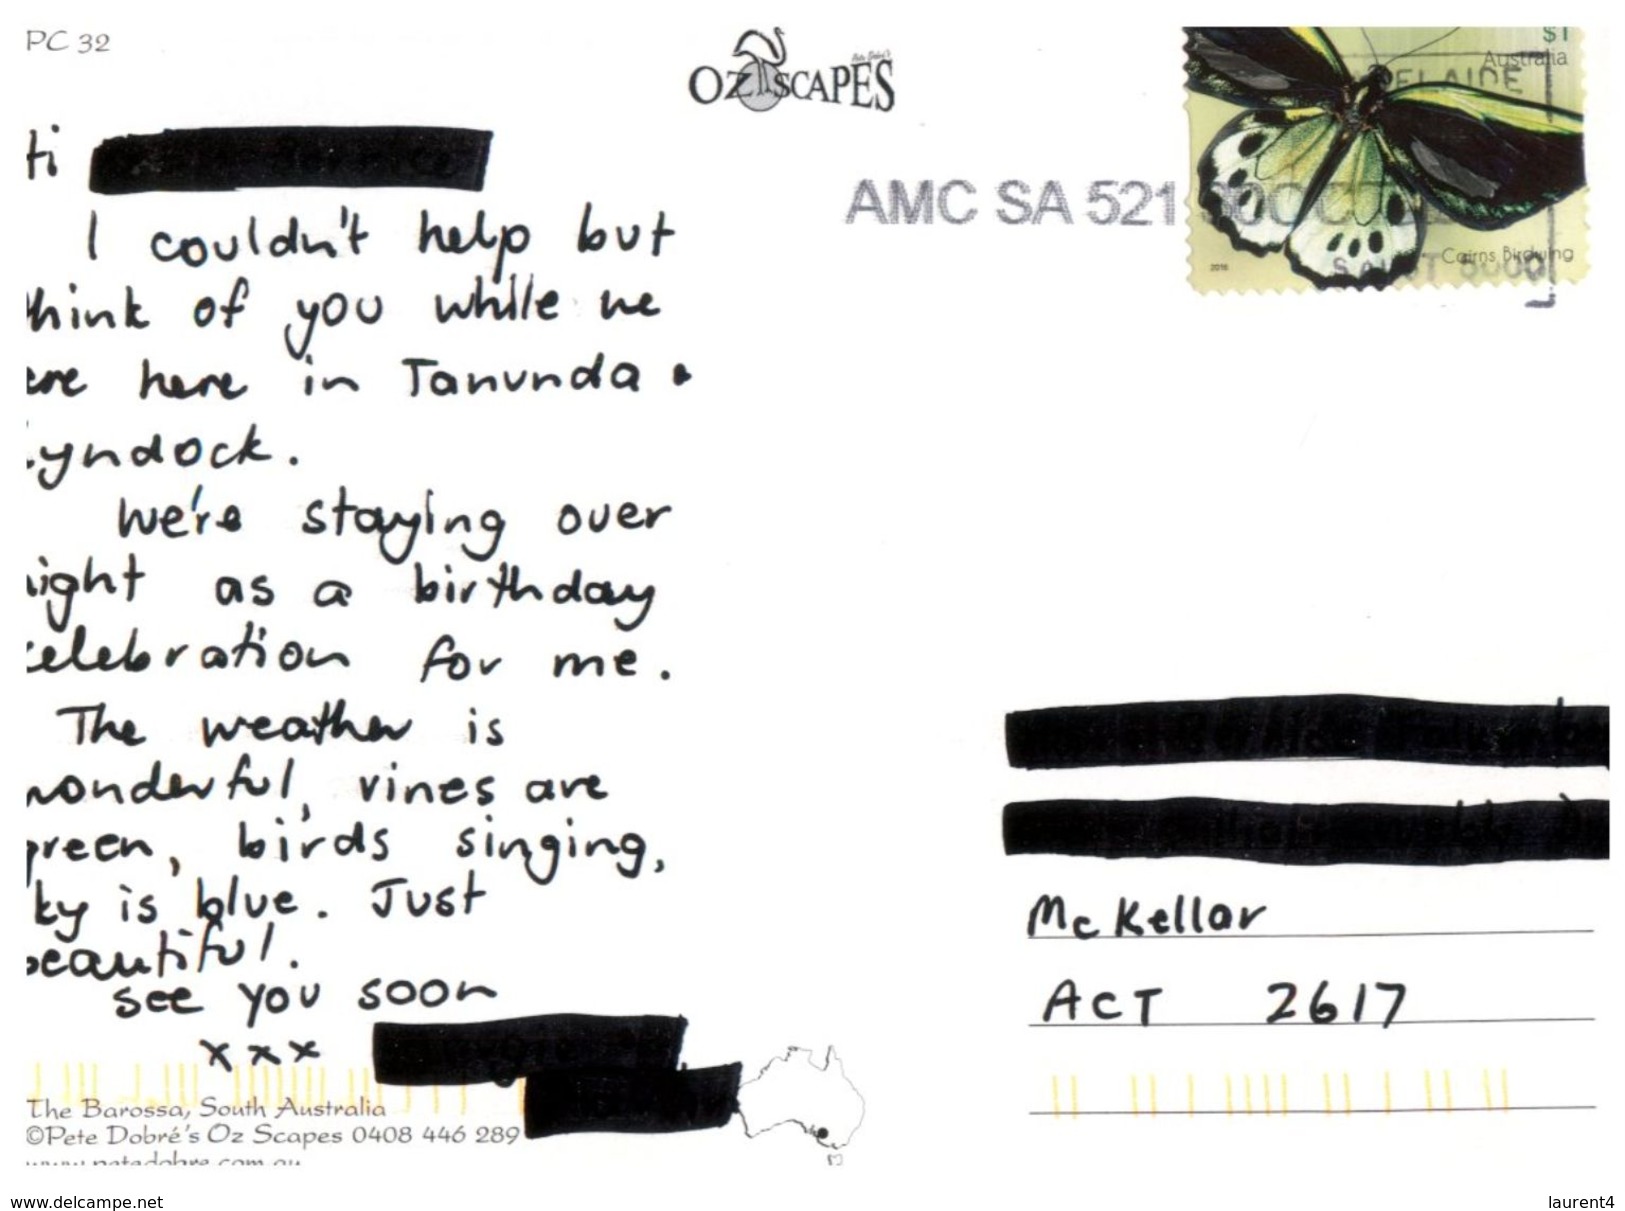 PC 32
OZ SCAPES
$1
Australia
ADELAIDE
AMC SA 521
Cairns Birdwing
2016
SA
5000
ti
I couldn't help but
hink of you while we
ere here in Tanunda &
yndock.
We're staying over
ight as a birthday
elebration for me.
The weather is
wonderful, vines are
green, birds singing,
ky is blue. Just
beautiful.
see you soon
xxx
McKellar
ACT 2617
The Barossa, South Australia
©Pete Dobré's Oz Scapes 0408 446 289
www.petedobre.com.au
www.delcampe.net
laurent4